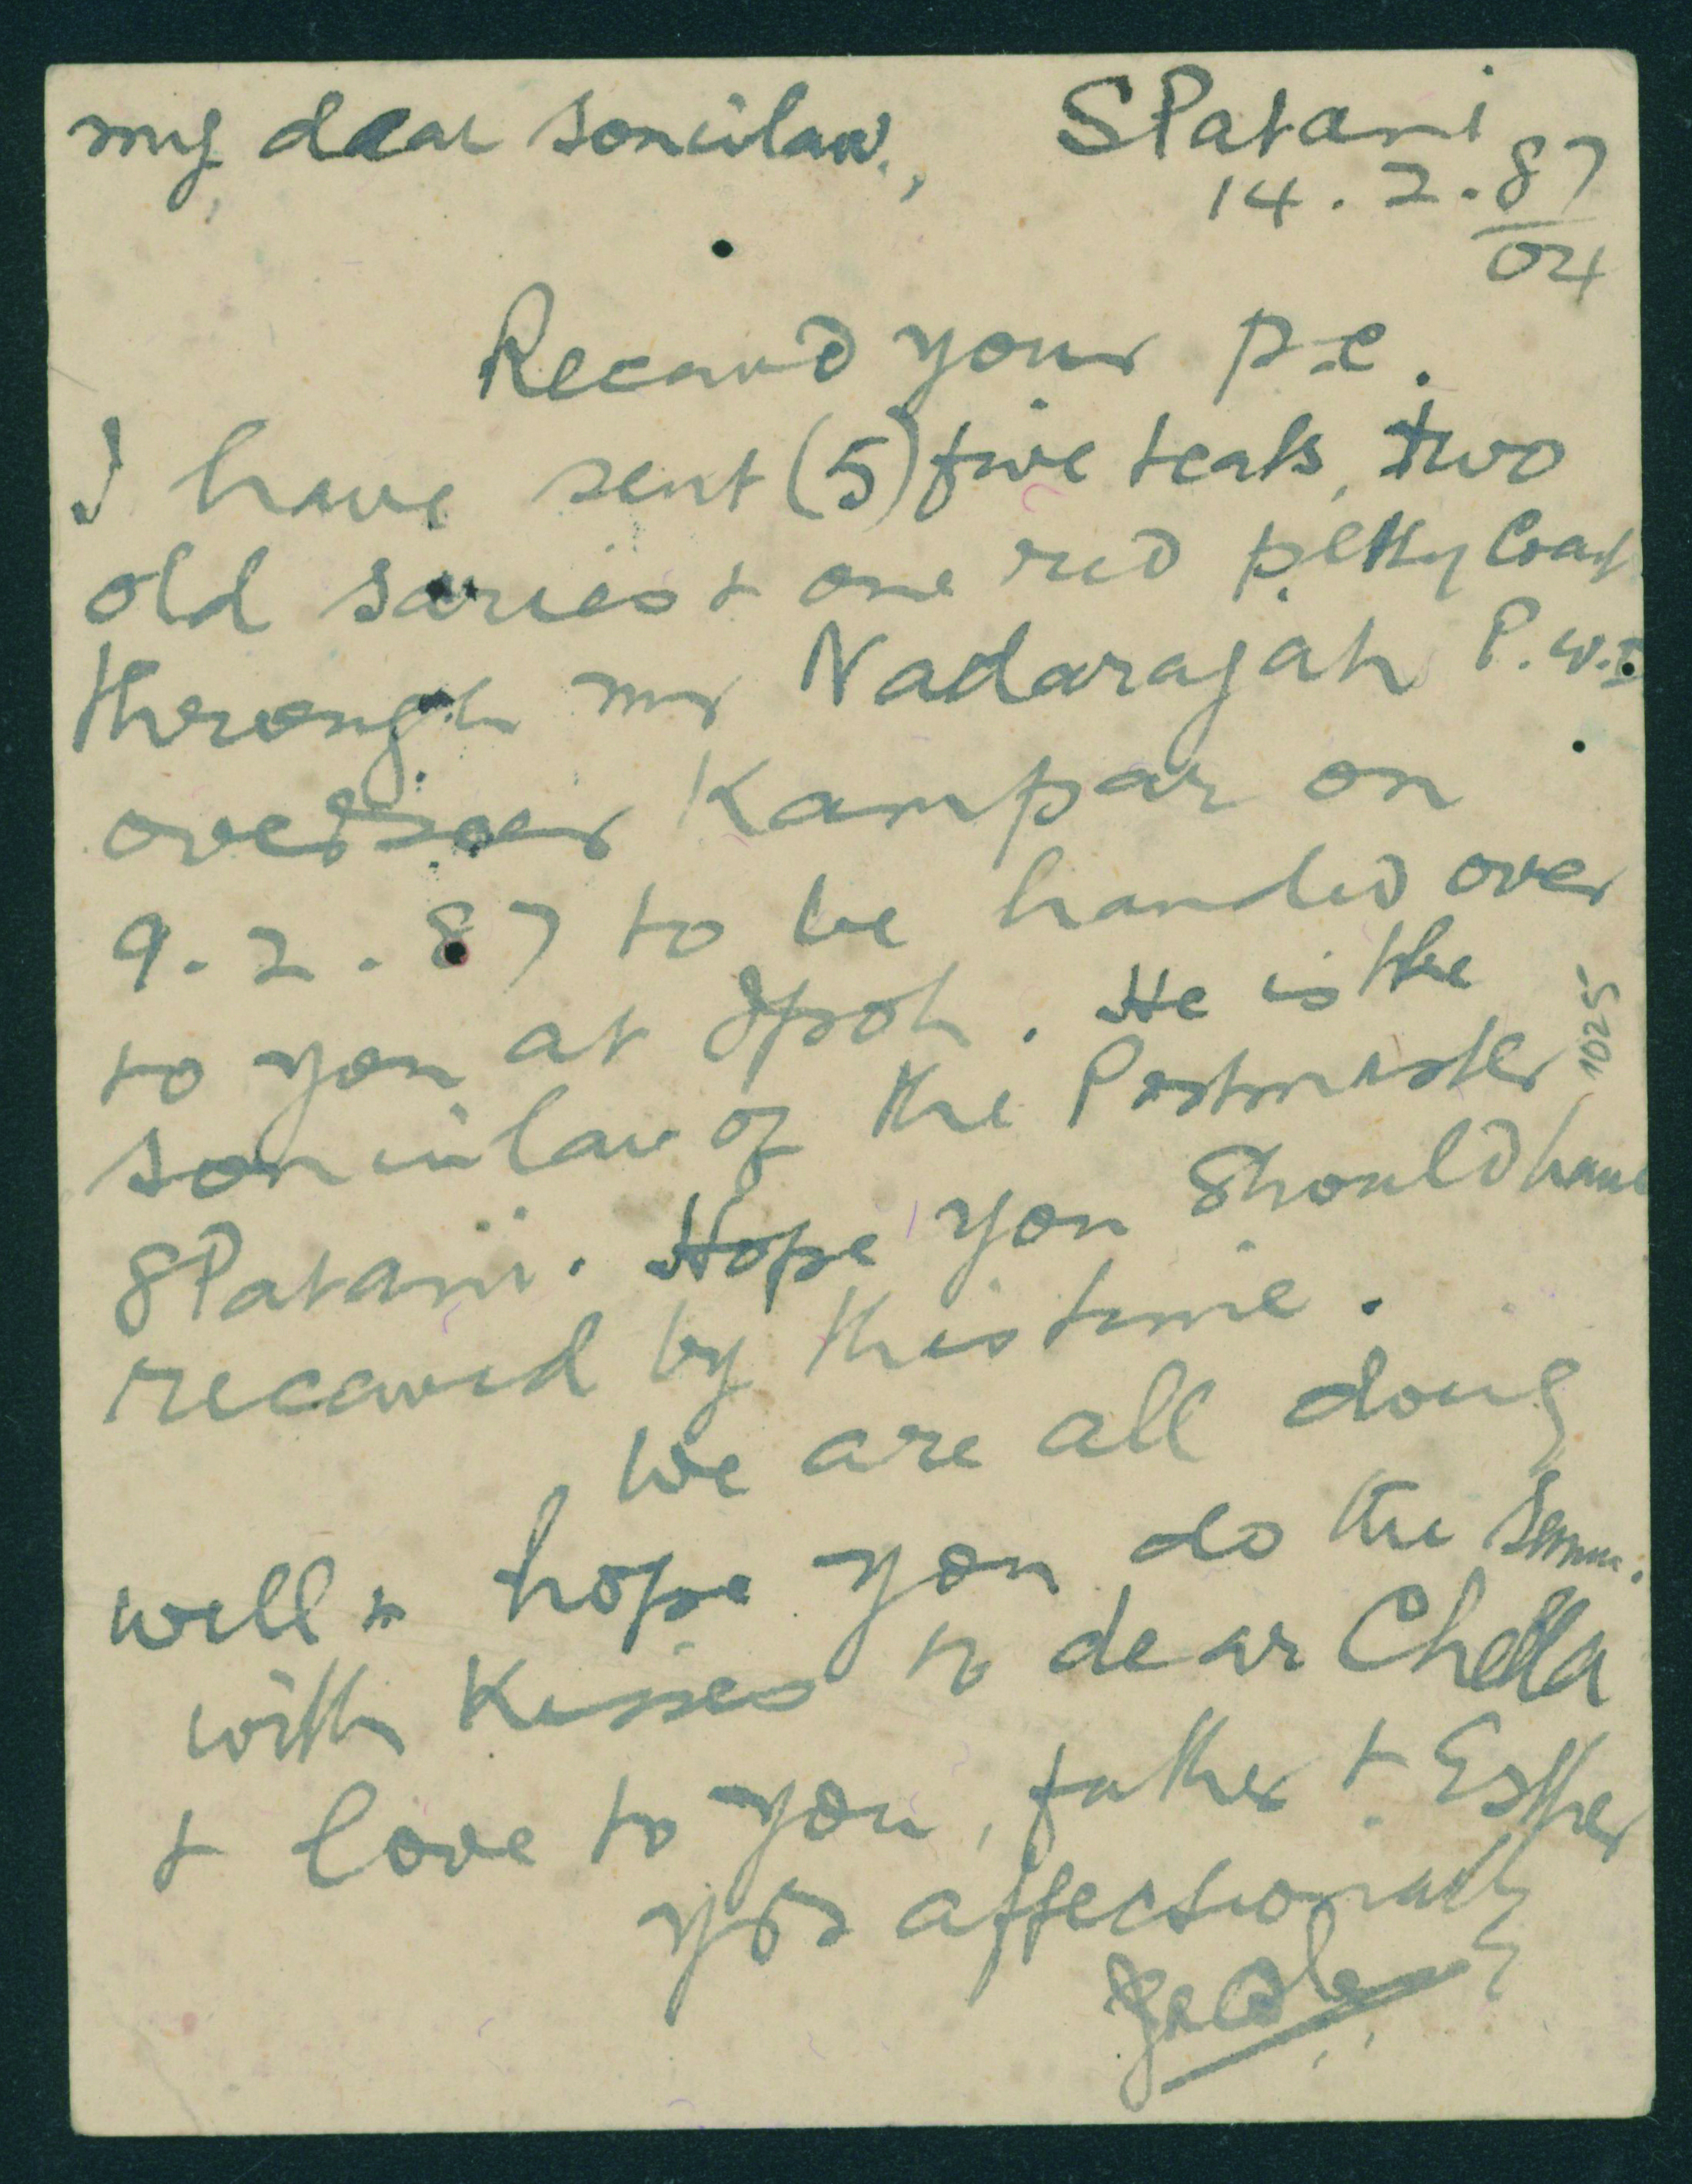 my dear soninlaw, SPatani
14.2.87
04
Recawd your p.c.
I have sent (5) five teals, two
old saries + one red petty Coat
through mr Nadarajah P.W.D
overseer Kampar on
9.2.87 to be handed over
to you at Ipoh. He is the
soninlaw of the Postmaster
SPatani. Hope you should have
recawed by this time.
1025
We are all doing
well & hope you do the same.
with Kisses to dear Chella
+ love to you, father + Esther
yrs affectionately